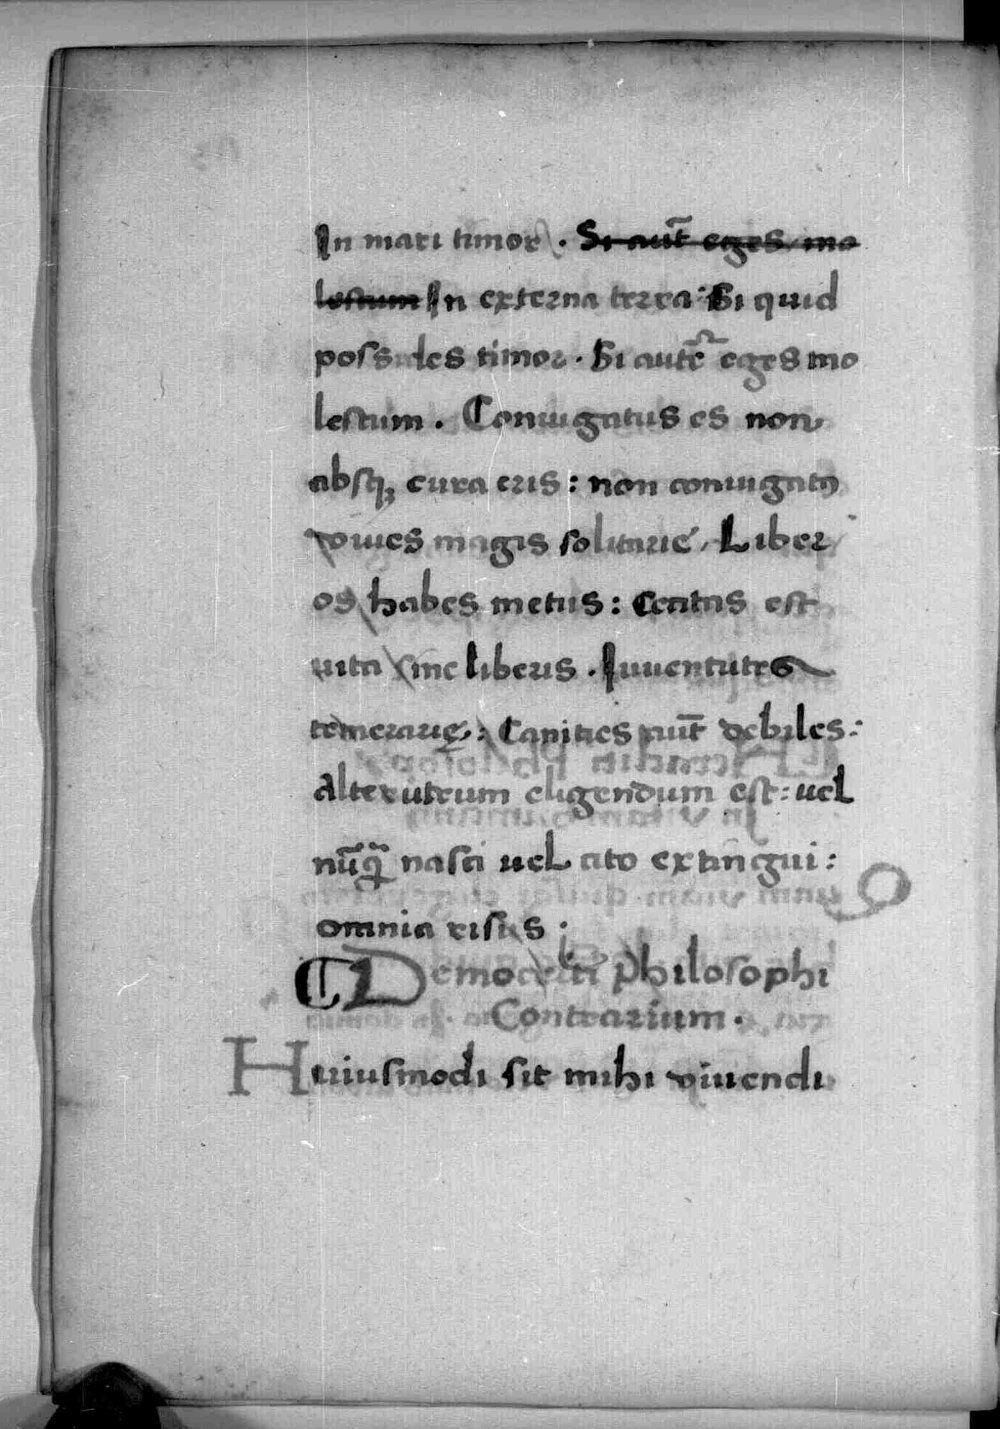 In mari timor . Si aut̃ eges mo
lestum In externa terra : Si quid
possides timor . Si autẽ eges mo
lestum . Coniugatus es non
absq; cura eris : non coniugatꝰ
viues magis solitarie . Liber
os habes metus : Cecitas est
uita sine liberis . Iuuentutes
temerarię : Canities aut̃ debiles :
Alterutrum eligendum est : uel
nũꝗ̃ nasci uel cito extingui :
omnia risus .
Democriti philosophi
Contrarium .
Huiusmodi sit mihi viuendi